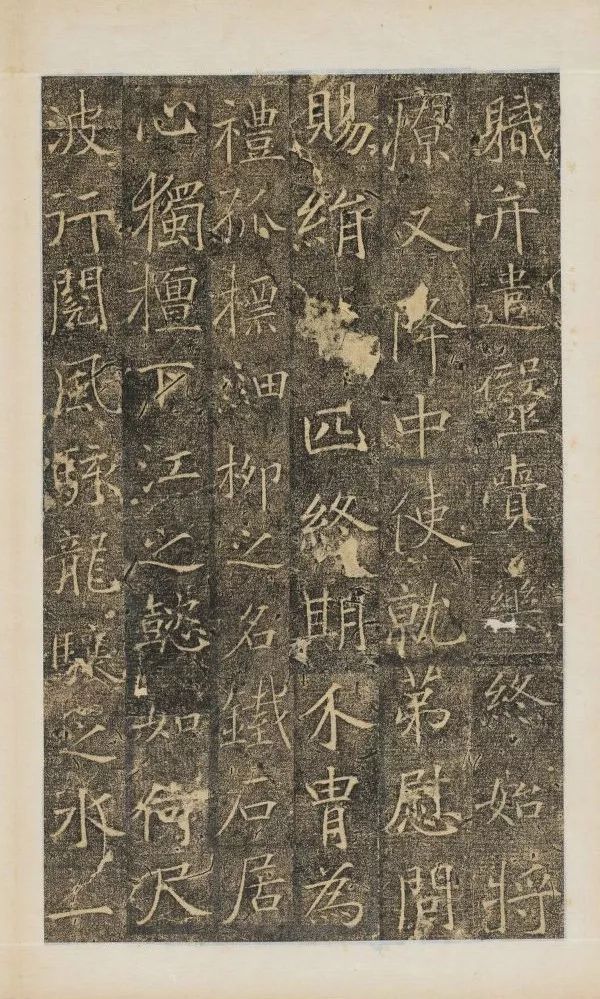 職并遣毉賷藥終始將
療又降中使就弟慰問
賜絹匹終期不胄為
禮孤標細柳之名鐵石居
心獨擅下江之懿如何尺
波行閱風龍驤之水一